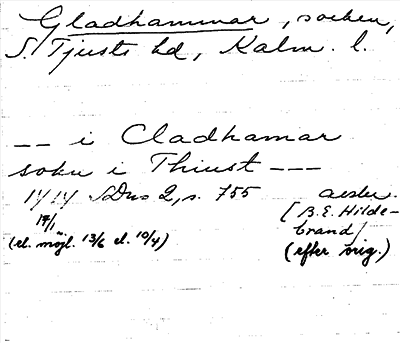 Gladhammar, socken,
S. Tjusts hd, Kalm. l.
-- i Cladhamar
sokn i Thiust ---
1414 SDns 2, s. 755
14/1
(el. möjl. 13/6 el. 10/4)
avskr.
[B.E. Hilde-
brand]
(efter orig.)